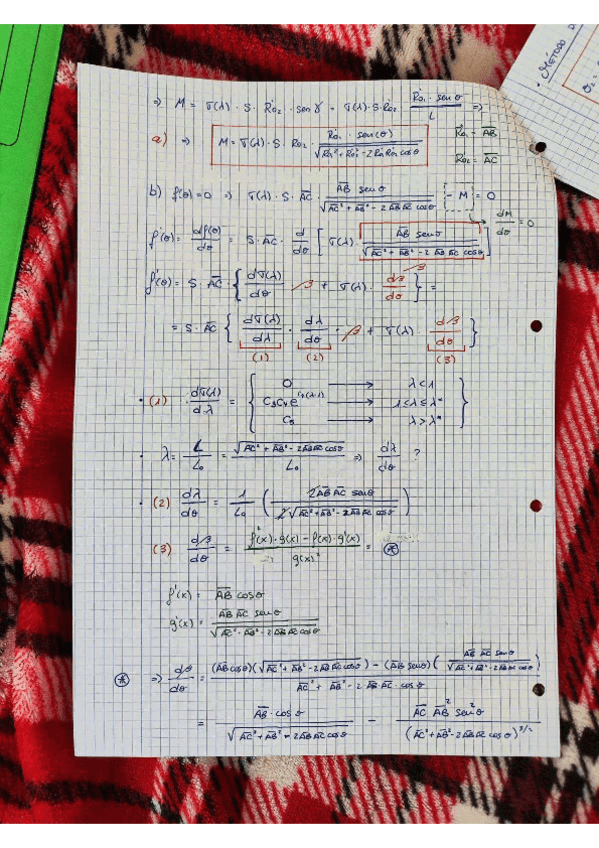 • MÉTODO
⇒ M = σ(λ) · S · R₀₂ · sen γ = σ(λ) · S · R₀₂ · R₀₁ · senθ / L ⇒
R₀₁ = AB
R₀₂ = AC
a) ⇒ M = σ(λ) · S · R₀₂ · R₀₁ · sen(θ) / √(R₀₁² + R₀₂² - 2R₀₁R₀₂cosθ)
b) f(θ) = 0 ⇒ σ(λ) · S · AC · AB senθ / √(AC² + AB² - 2ABAC cosθ) - M = 0
→ dM/dθ = 0
f'(θ) = df(θ)/dθ = S · AC · d/dθ [σ(λ) · AB senθ / √(AC² + AB² - 2AB AC cosθ)]
β
f'(θ) = S · AC · { dσ(λ)/dθ β + σ(λ) · dβ/dθ } =
= S · AC { dσ(λ)/dλ · dλ/dθ · β + σ(λ) · dβ/dθ }
(1) (2) (3)
• (1) dσ(λ)/dλ = { 0 → λ < 1
→ 1 ≤ λ ≤ λ*
C₅ → λ > λ* }
• λ = L/L₀ = √(AC² + AB² - 2ABAC cosθ) / L₀ ⇒ dλ/dθ ?
• (2) dλ/dθ = 1/L₀ ( 2ABAC senθ / 2√(AC² + AB² - 2ABAC cosθ) )
• (3) dβ/dθ = f'(x) · g(x) - f(x) · g'(x) / g(x)² = (*)
f'(x) = AB cosθ
g'(x) = AB AC senθ / √(AC² + AB² - 2ABAC cosθ)
(*) ⇒ dβ/dθ = (AB cosθ)(√(AC² + AB² - 2ABAC cosθ)) - (AB senθ)( AB AC senθ / √(AC² + AB² - 2ABAC cosθ) ) / AC² + AB² - 2 AB AC · cosθ
= AB · cosθ / √(AC² + AB² - 2ABAC cosθ) - AC AB² sen²θ / (AC² + AB² - 2ABAC cosθ)^3/2